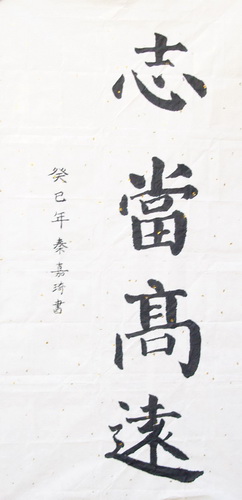 志當高遠
癸巳年秦嘉琦書